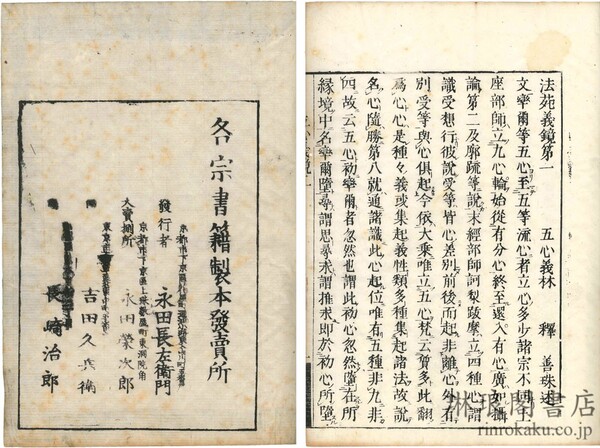 法苑義鏡第一 五心義林 釋 善珠述
文率爾等五心至五等流心者立心多少諸宗不同上
座部師立九心輪始從有分心終至還入有心廣如攝
論第二及廓疏等說末經部師訶梨跋摩立四種心謂
識受想行彼說受等皆心差別前後而起非離心外有
別受等與心俱起今依大乘唯立五心梵云質多此翻
爲心心是種々義或集起義性類多種集起諸法故說
名心隨勝第八就通諸識此心起位唯有五種非九非
四故云五心初率爾者忽然也謂此初心忽然墮在所
緣境中名率爾墮尋謂思尋求謂推求即於初心所墮
各宗書籍製本發賣所
發行者
永田長左衛門
大賣捌所
京都市下京區上珠數屋町東洞院角
永田榮次郎
吉田久兵衛
長崎治郎
琳琅閣書店
rinrokaku.co.jp